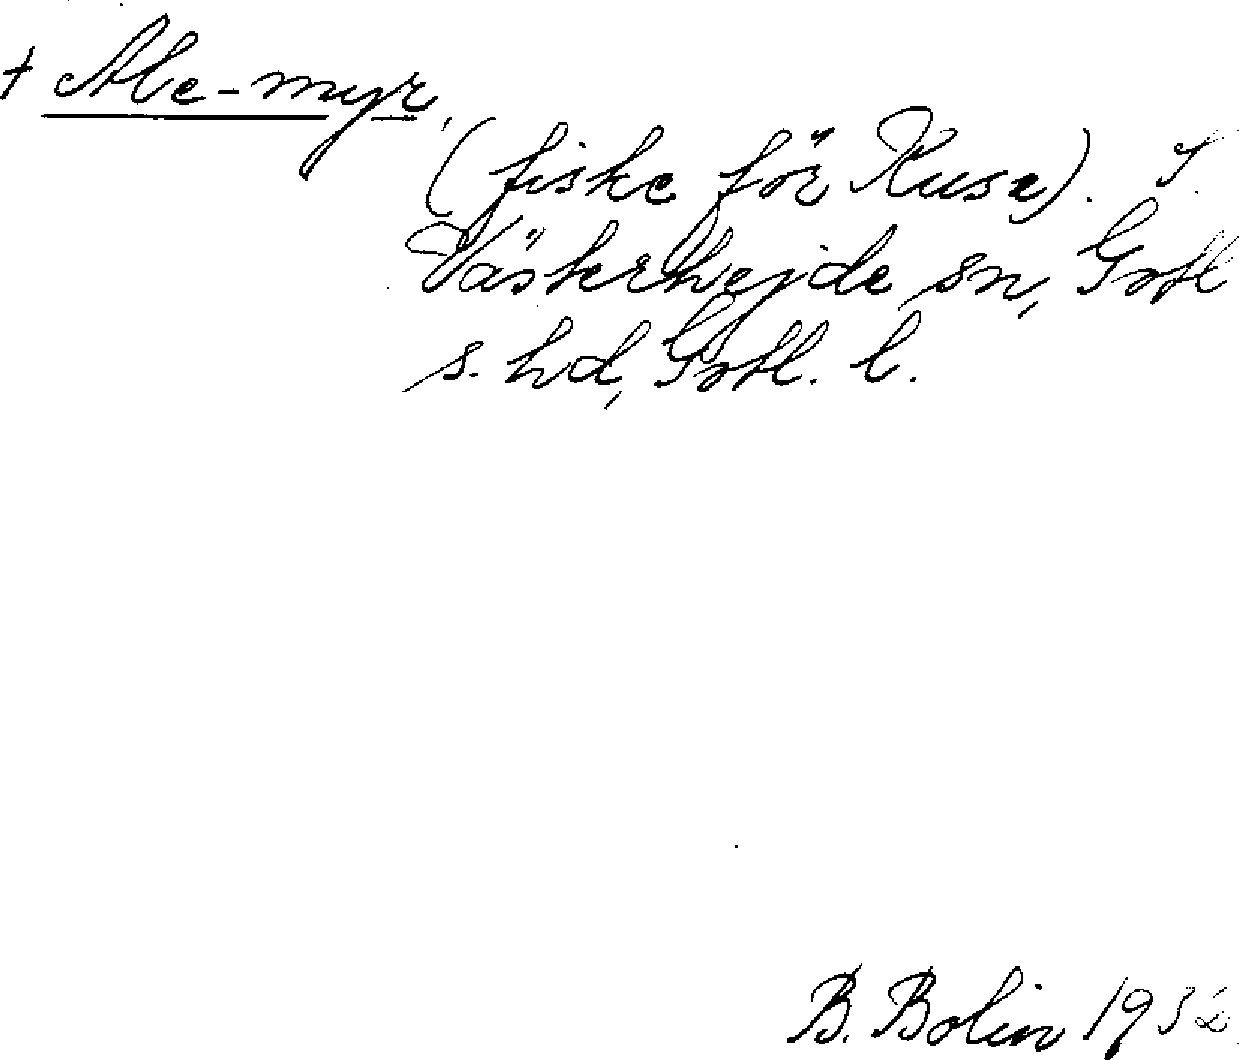 † Abe-myr,
(fiske för Kuse). I.
Västerhejde sn, Gotl
s. hd, Gotl. l.
B. Bolin 1932